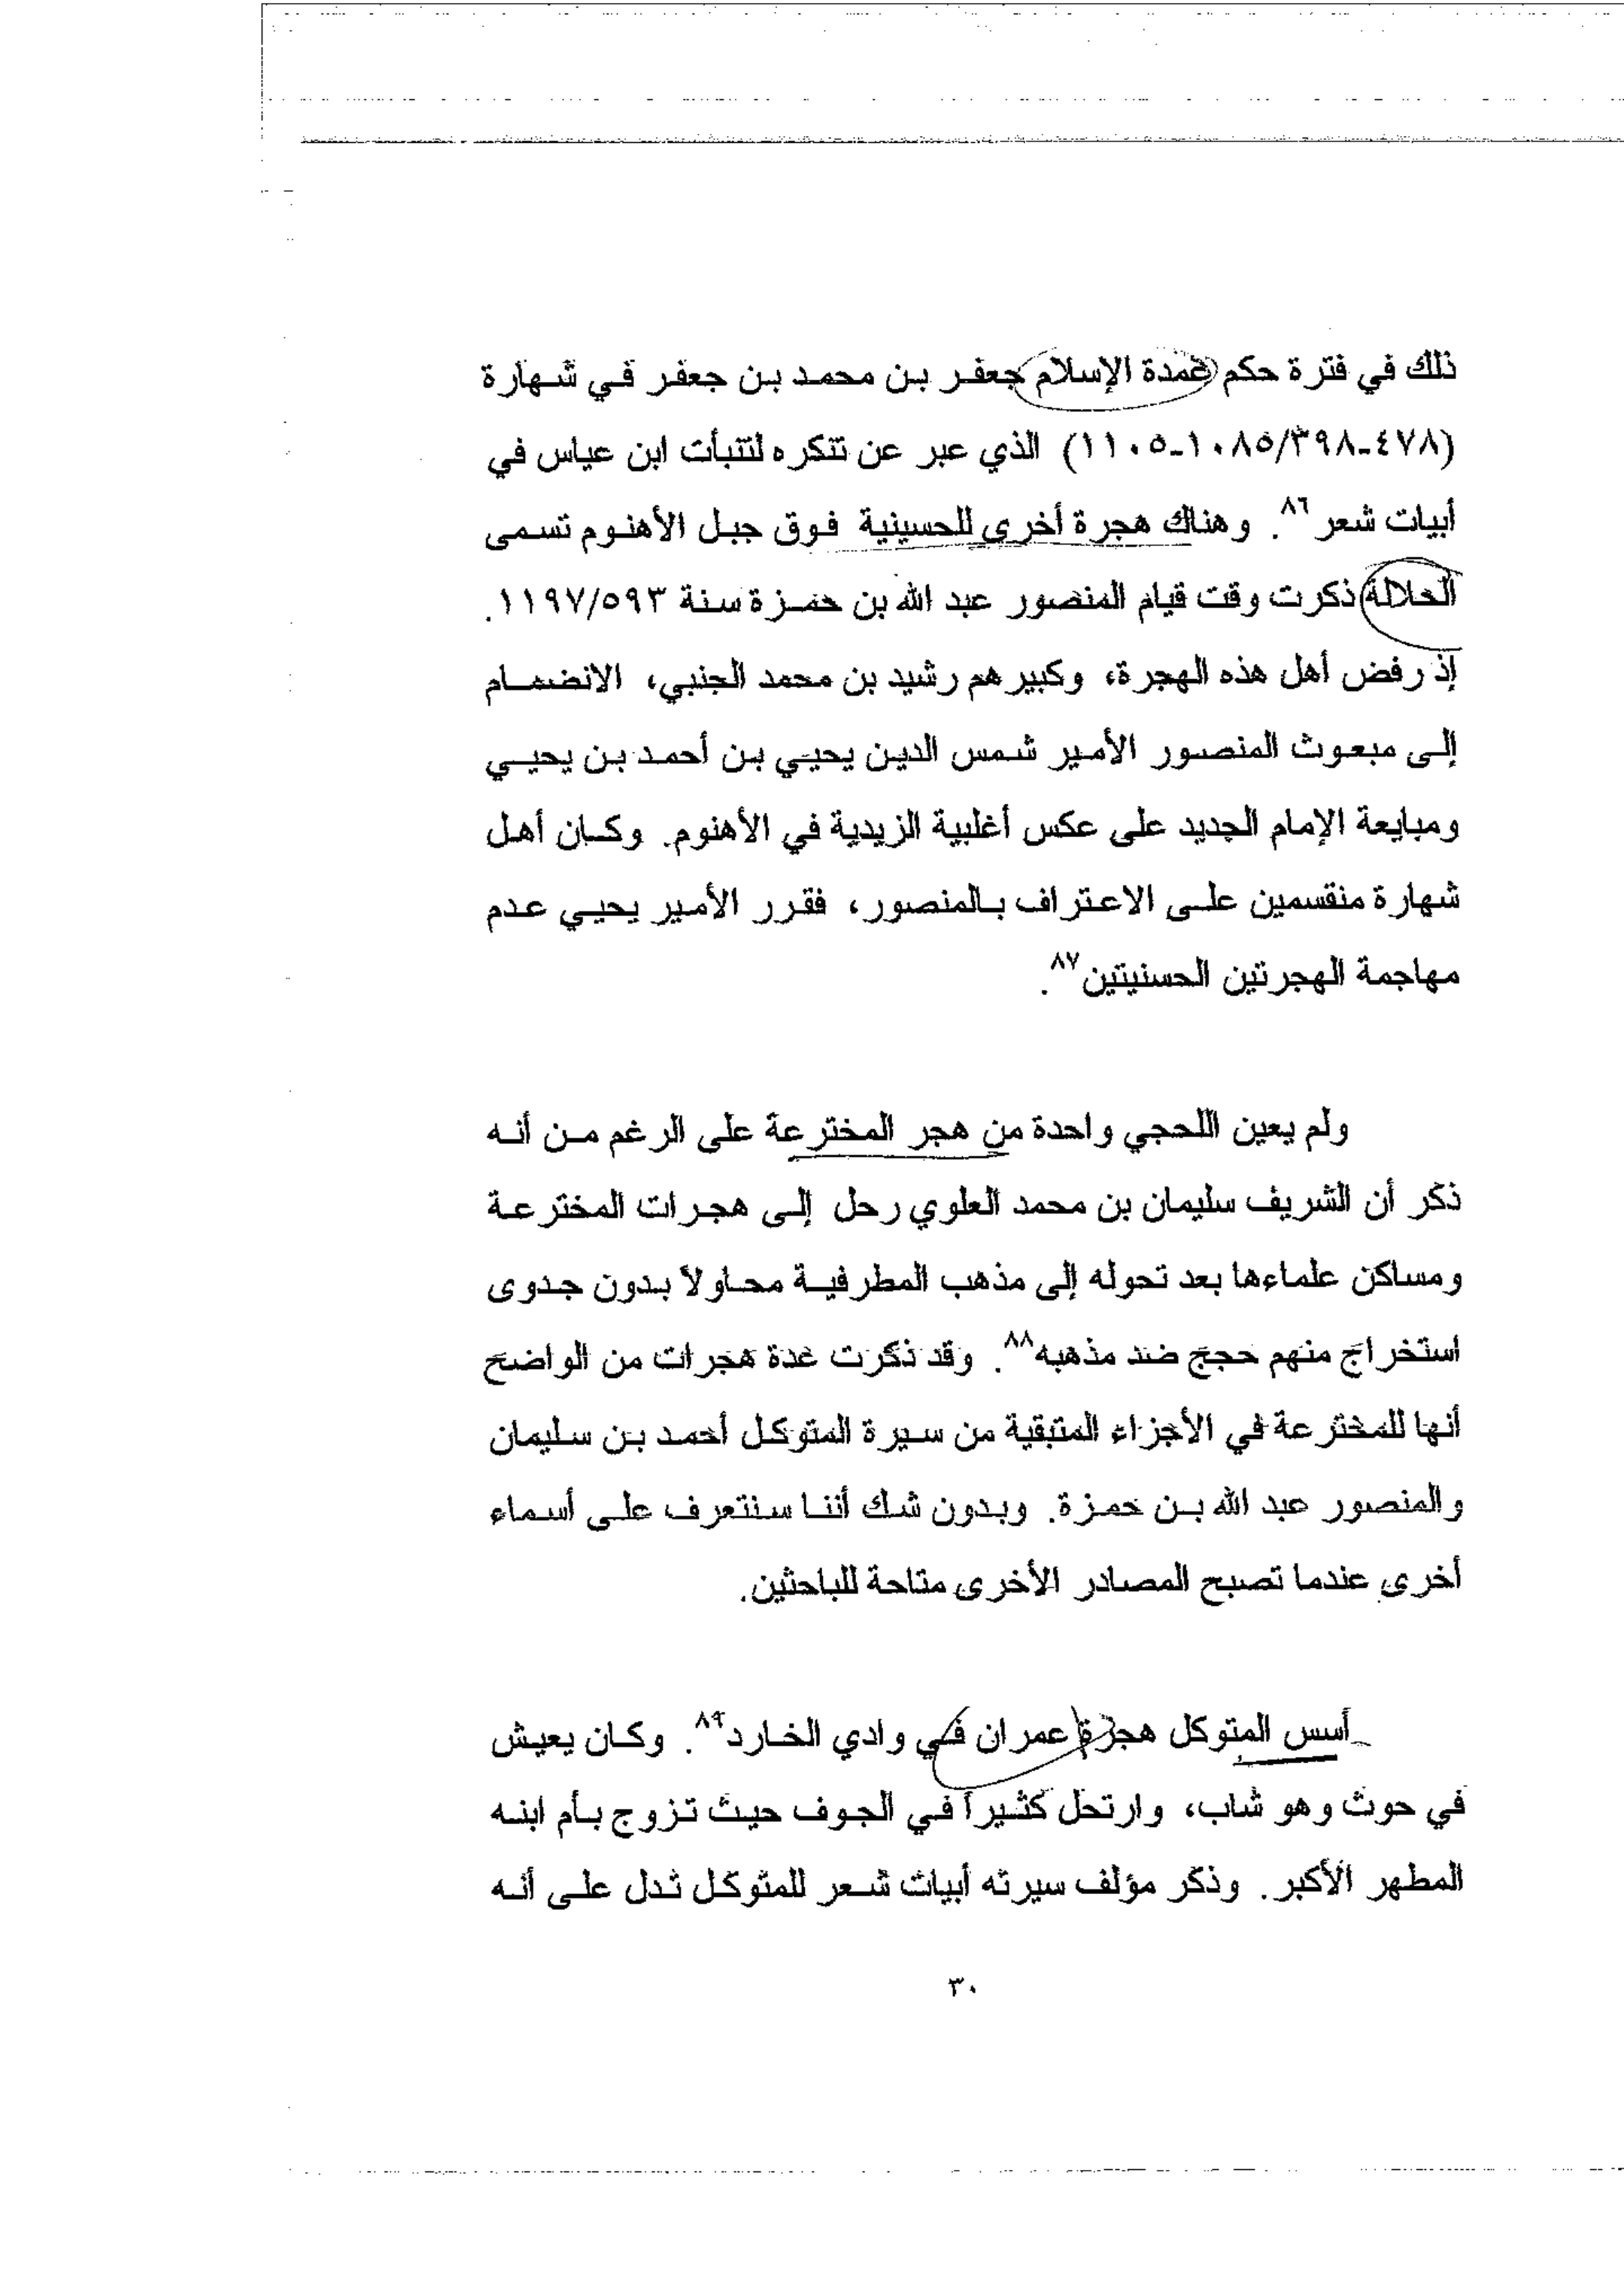 ذلك في فترة حكم عمدة الإسلام جعفر بن محمد بن جعفر في شهارة
(٤٧٨-٣٩٨/١٠٨٥-١١٠٥) الذي عبر عن تنكره لتنبأت ابن عياس في
أبيات شعر٨٦. وهناك هجرة أخرى للحسينية فوق جبل الأهنوم تسمى
الحلالة ذكرت وقت قيام المنصور عبد الله بن حمزة سنة ١١٩٧/٥٩٣.
إذ رفض أهل هذه الهجرة، وكبيرهم رشيد بن محمد الجنبي، الانضمام
إلى مبعوث المنصور الأمير شمس الدين يحيي بن أحمد بن يحيي
ومبايعة الإمام الجديد على عكس أغلبية الزيدية في الأهنوم. وكان أهل
شهارة منقسمين على الاعتراف بالمنصور، فقرر الأمير يحيي عدم
مهاجمة الهجرتين الحسنيتين٨٧.
ولم يعين اللحجي واحدة من هجر المخترعة على الرغم من أنه
ذكر أن الشريف سليمان بن محمد العلوي رحل إلى هجرات المخترعة
ومساكن علماءها بعد تحوله إلى مذهب المطرفية محاولاً بدون جدوى
استخراج منهم حجج ضد مذهبه٨٨. وقد ذكرت عدة هجرات من الواضح
أنها للمخترعة في الأجزاء المتبقية من سيرة المتوكل أحمد بن سليمان
والمنصور عبد الله بن حمزة. وبدون شك أننا سنتعرف على أسماء
أخرى عندما تصبح المصادر الأخرى متاحة للباحثين.
أسس المتوكل هجرة عمران في وادي الخارد٨٩. وكان يعيش
في حوث وهو شاب، وارتحل كثيراً في الجوف حيث تزوج بأم ابنه
المطهر الأكبر. وذكر مؤلف سيرته أبيات شعر للمتوكل تدل على أنه
٣٠